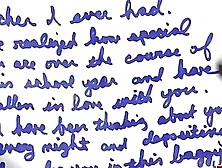 cher I ever had.
realized how special
are over the course of
is school year and have
llen in love with you.
have been thinking about yo
very night and
you in this